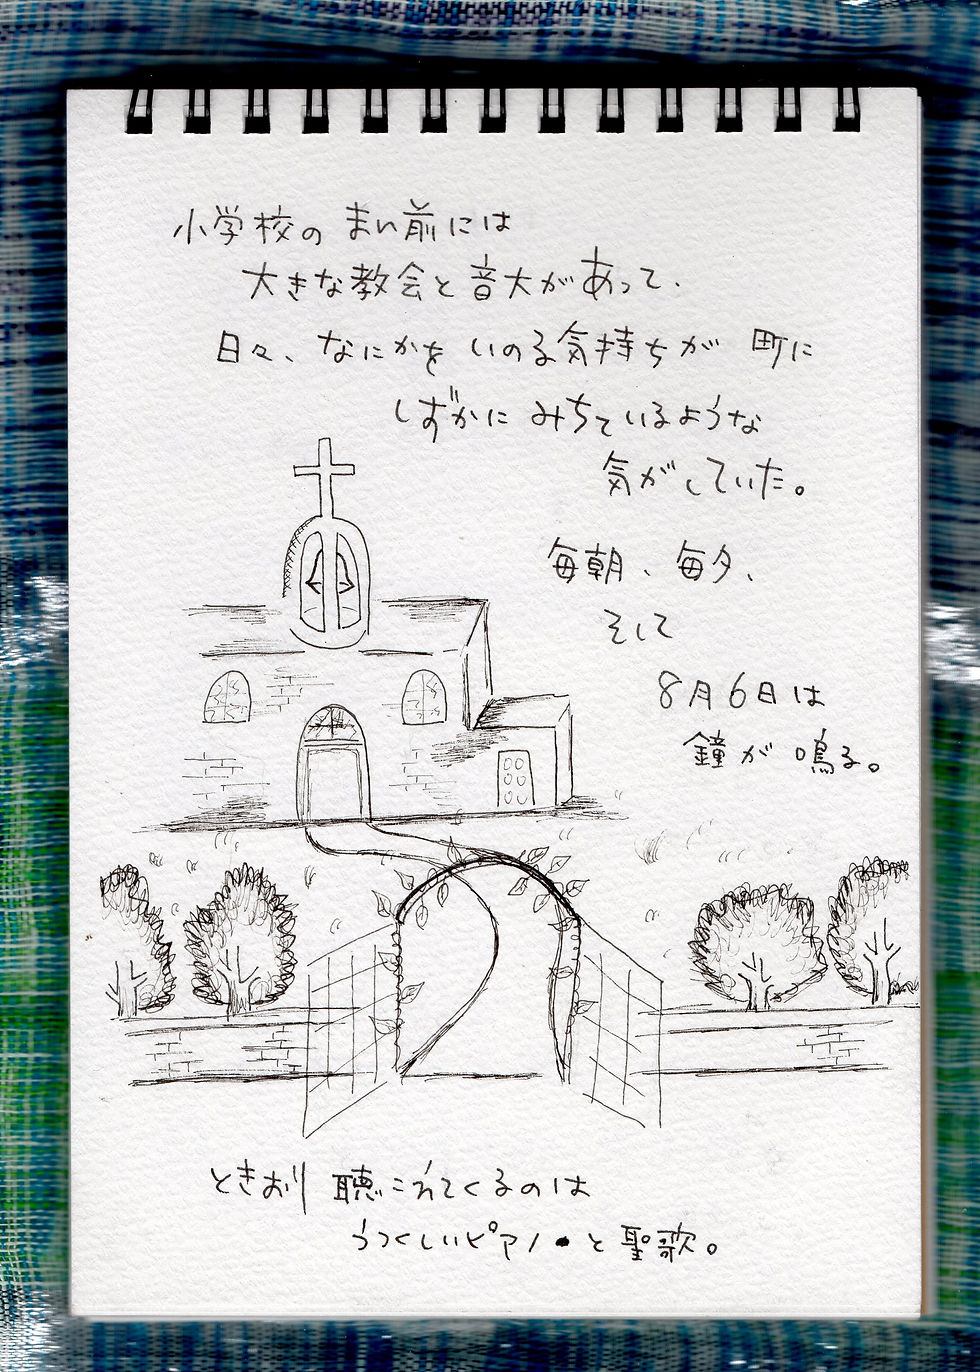 小学校の まん前には
大きな教会と音大があって、
日々、なにかを いのる気持ちが 町に
しずかに みちているような
気がしていた。
毎朝、毎夕、
そして
8月6日は
鐘が鳴る。
ときおり 聴こえてくるのは
うつくしいピアノ と聖歌。